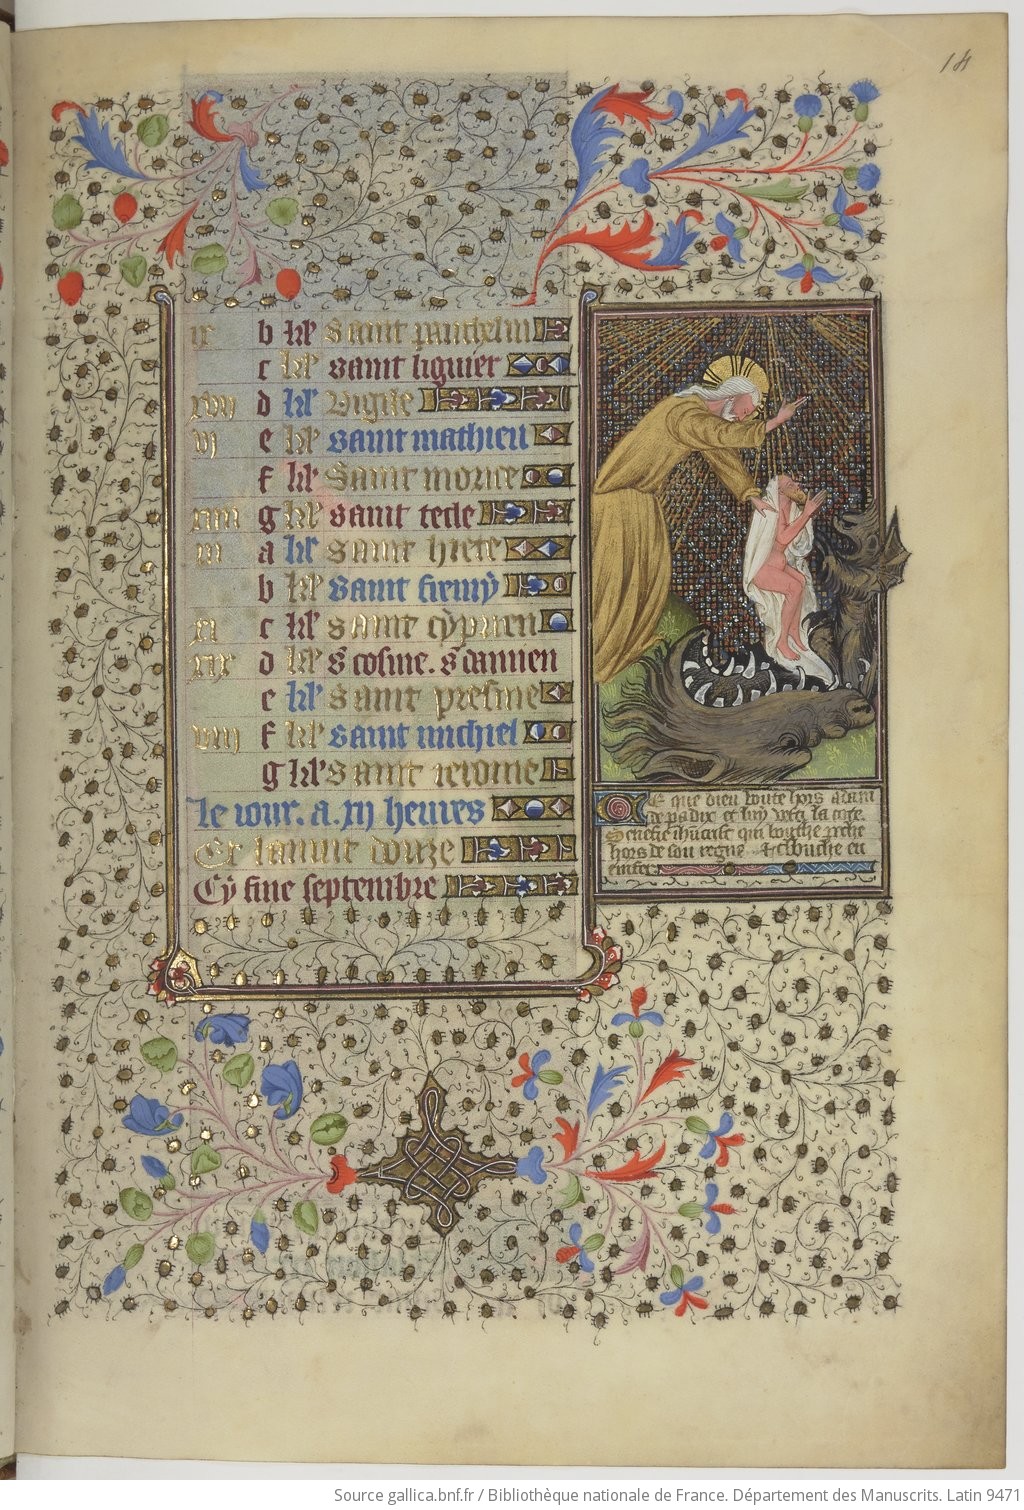 14
ix b kl' Saint pantelin
c kl' saint liguier
xvii d kl' Vigile
vi e kl' saint mathieu
f kl' Saint morice
xiiii g kl' saint tecle
iii a kl' Saint
b kl' saint firmy
xi c kl' Saint cyprien
xix d kl' s' cosme. s' damien
e kl' Saint
viii f kl' saint michiel
g kl' Saint ierome
le iour. a. xii heures
Et la nuit douze
Cy fine septembre
Ce que dieu boute hors adam
de
Senefie ihucrist qui
hors de son regne. et
enfer
Source gallica.bnf.fr / Bibliothèque nationale de France. Département des Manuscrits. Latin 9471